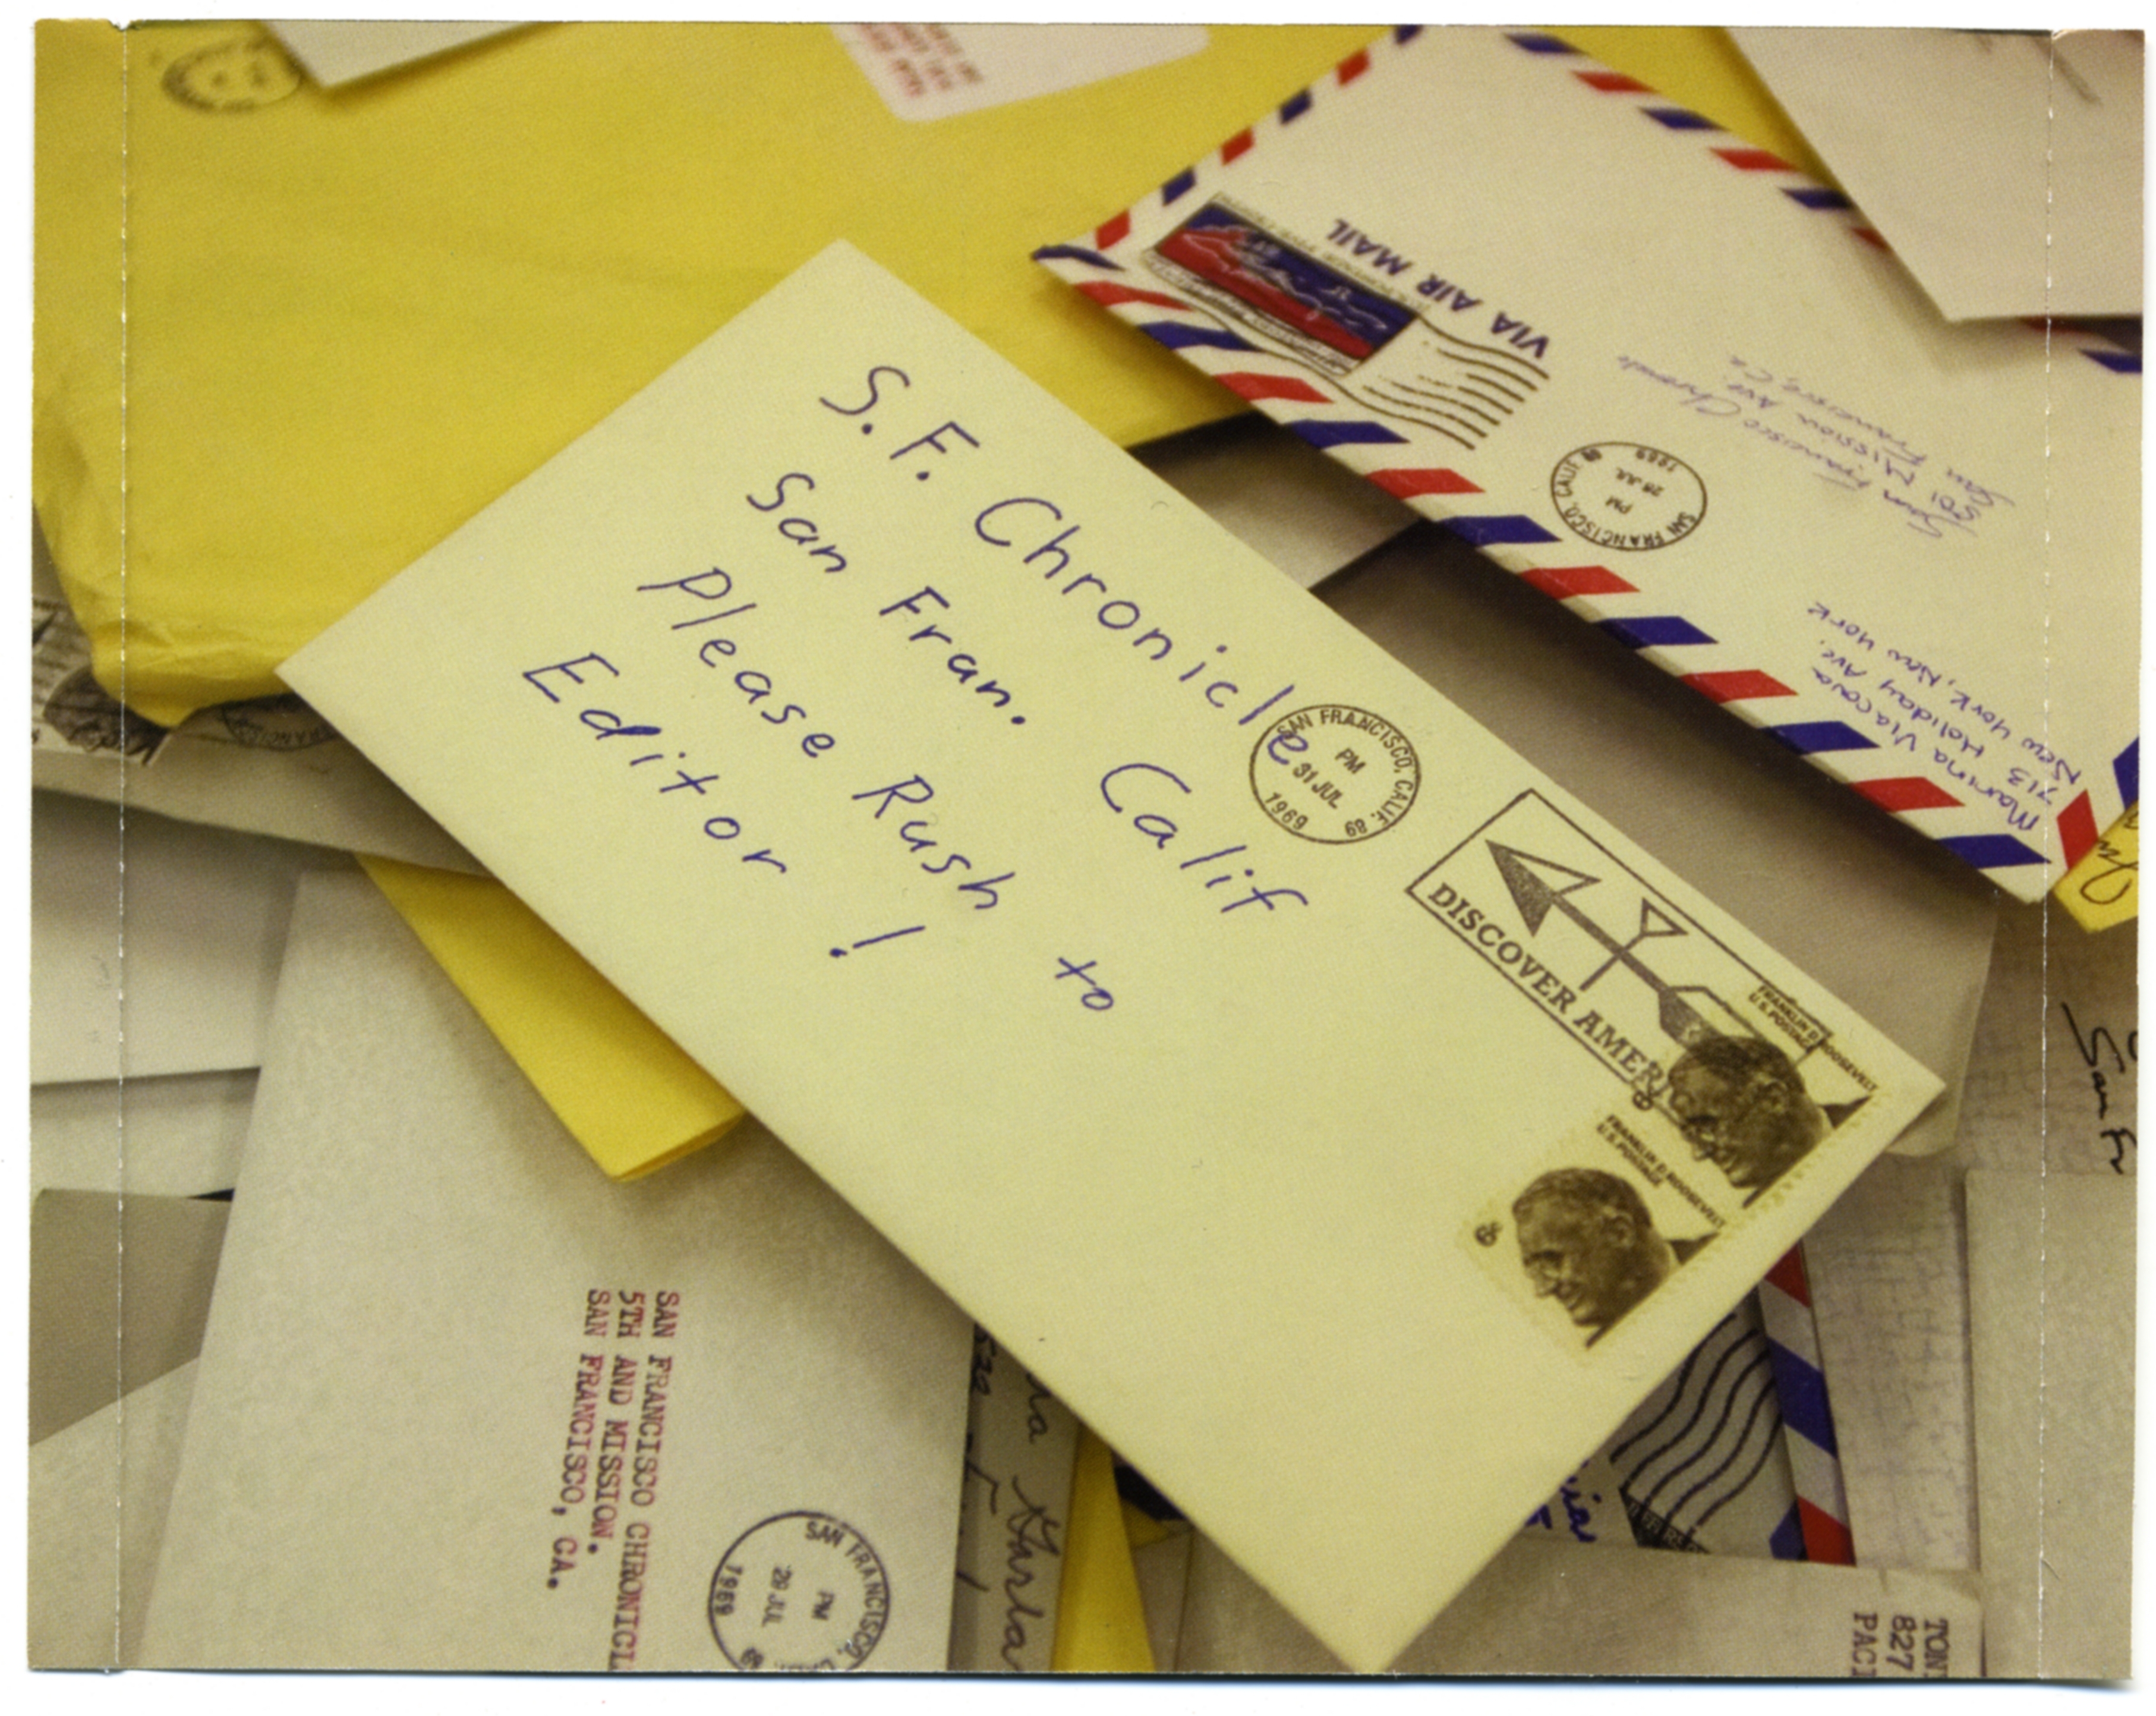 S.F. Chronicle
San Fran. Calif
Please Rush to
Editor!
SAN FRANCISCO, CALIF. 89
PM
31 JUL
1969
DISCOVER AMERICA
FRANKLIN D. ROOSEVELT
U.S. POSTAGE
6¢
FRANKLIN D. ROOSEVELT
U.S. POSTAGE
6¢
VIA AIR MAIL
SAN FRANCISCO, CALIF 89
PM
28 JUL
1969
San Francisco Chronicle
5701 Mission Ave
San Francisco, CA
Marina Viacava
713 Holiday Ave.
New York, New York
SAN FRANCISCO CHRONICL
5TH AND MISSION.
SAN FRANCISCO, CA.
SAN FRANCISCO,
PM
29 JUL
1969
San Fr
TON
827
PACI